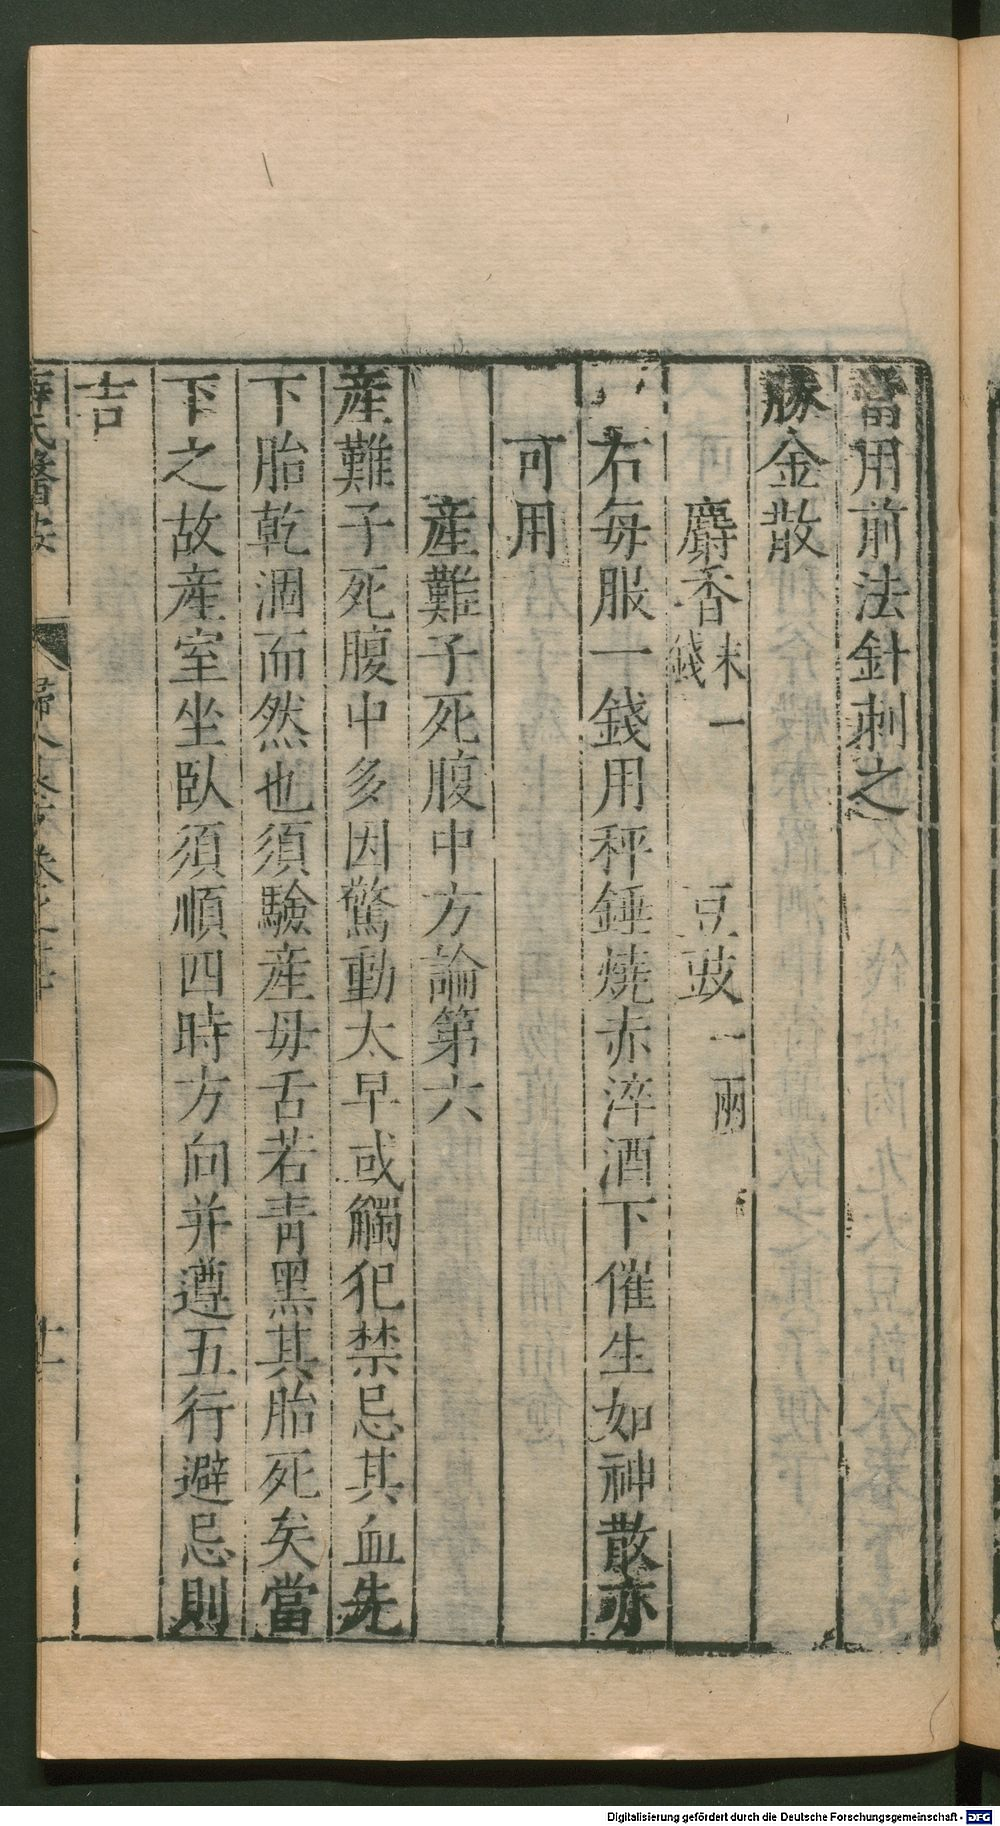 當用前法針刺之
勝金散
麝香末一錢 豆豉一兩
右每服一錢用秤錘燒赤淬酒下催生如神散亦
可用
産難子死腹中方論第六
産難子死腹中多因驚動太早或觸犯禁忌其血先
下胎乾涸而然也須驗産母舌若青黑其胎死矣當
下之故産室坐臥須順四時方向并遵五行避忌則
吉
氏醫案 卷之 十一
Digitalisierung gefördert durch die Deutsche Forschungsgemeinschaft - DFG